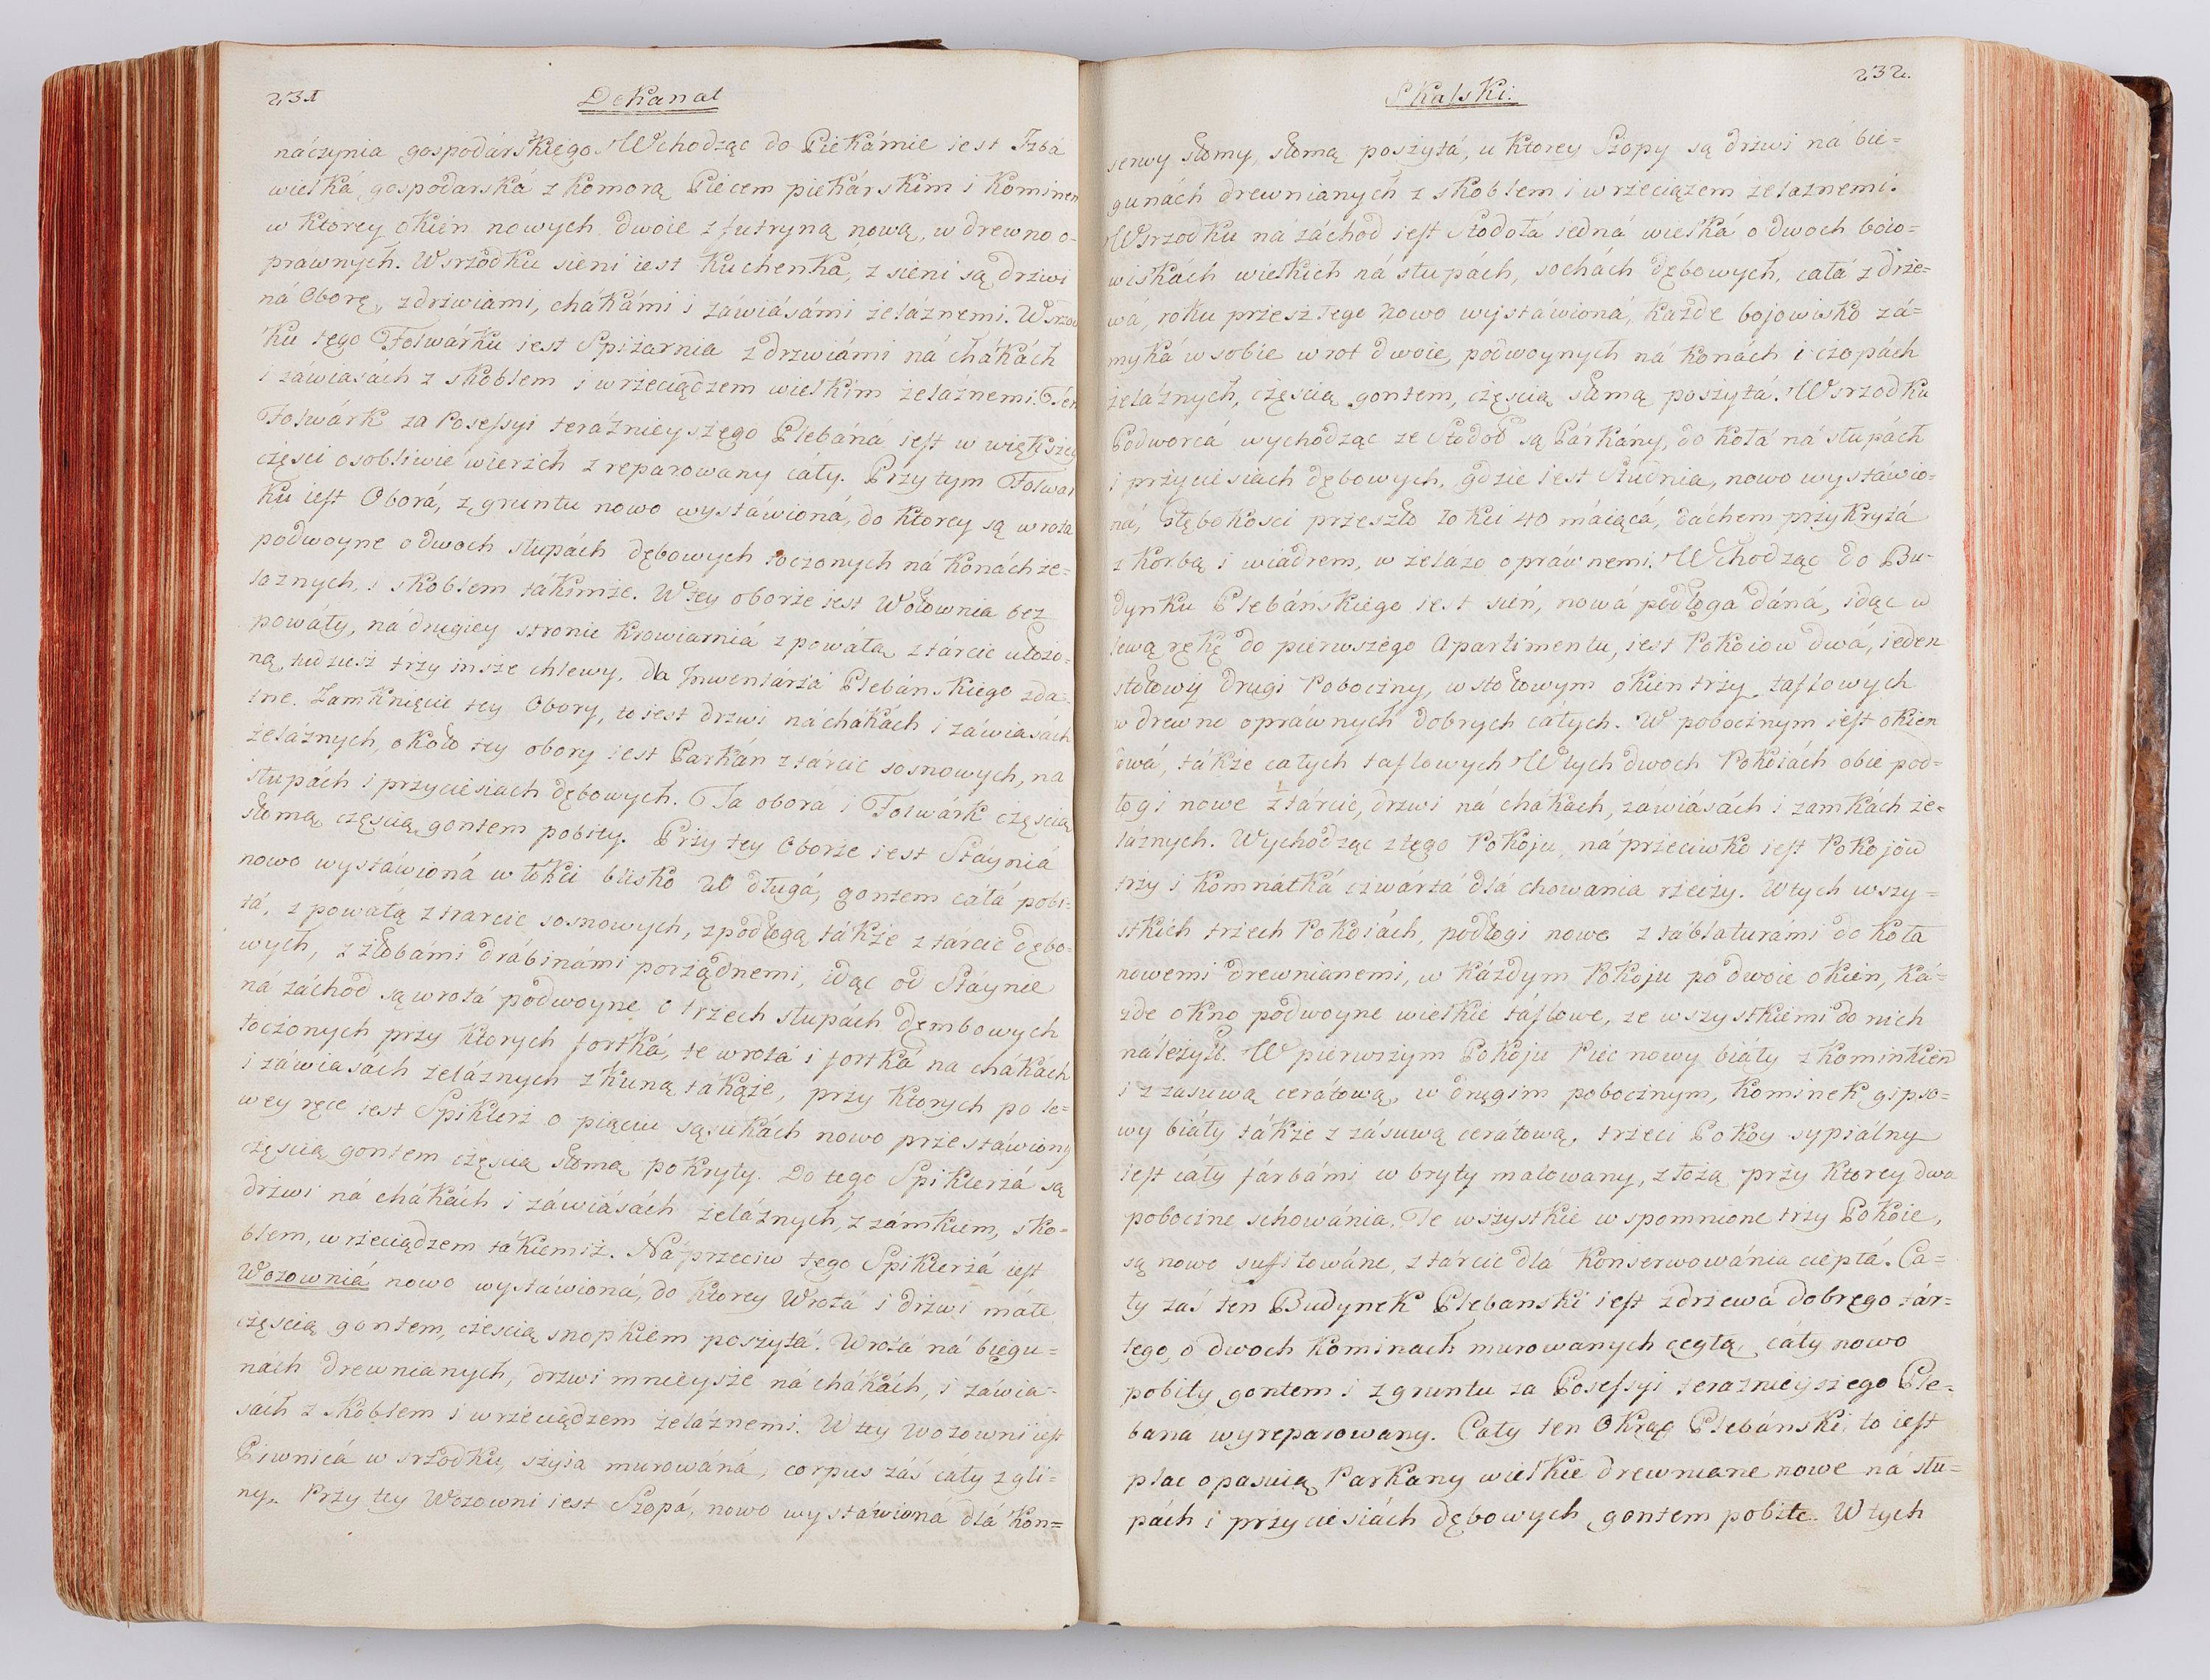 231
Dekanat
náczynia gospodárskięgo. Wchodząc do Piekárnie iest Izbá
wielká gospodarská z komorą Piecem piekárskim i Kominem
w ktorey okien nowych dwoie z futryną nową, w drewno o-
prawnych. Wsrzodku sieni iest kuchenka, z sieni są drzwi
ná Oborę, z drzwiami, chákámi i záwiásámi zeláznemi. Wsrzod
ku tego Folwárku iest Spiżarnia z drzwiámi ná chákách
i záwiasách z skoblem i wrzeciądzem wielkim żeláznemi. Ten
Folwárk za Posessyi teráznieyszęgo Plebáná iest w większey
części osobliwie wierzch zreparowany cáły. Przy tym Folwar
ku iest Oborá, z gruntu nowo wystáwioná, do ktorey są wrota
podwoyne o dwoch słupách dębowych toczonych ná konách że=
laznych, i skoblem tákimże. W tey oborze iest Wołownia bez
powáły, ná drugiey stronie krowiarniá z powáłą z tárcic ułożo-
ną, tudziesz trzy insze chlewy, dla Inwentárza Plebánskiego zda-
tne. Zamknięcie tey Obory, to iest drzwi ná chákách i záwiasách
żeláznych, około tey obory iest Parkán z tárcic sosnowych, na
słupách i przyciesiach dębowych. Ta oborá i Folwárk częscią
słomą, częscią gontem pobity. Przy tey Oborze iest Stayniá
nowo wystáwioná w łokci blisko 20 długá, gontem cáłá pobi=
tá, z powałą z trarcic sosnowych, z podłogą tákże z tárcic dębo-
wych, z żłobámi drábinámi porządnemi, idąc od Stáynie
ná záchod są wrotá podwoyne o trzech słupách dęmbowych
toczonych przy ktorych fortká, te wrotá i fortká na chákách
i záwiasách zeláznych z kuną tákąże, przy ktorych po le=
wey ręce iest Spiklerz o pięciu sąsiekách nowo przestáwiony
częscią gontem częscią słomą pokryty. Do tego Spiklerzá są
drzwi ná chákách i záwiásách żeláznych, z zámkiem, sko-
blem, wrzeciądzem tákiemiż. Náprzeciw tego Spiklerzá iest
Wozowniá nowo wystáwioná, do ktorey Wrotá i drzwi máłe
częscią gontem, częscią snopkiem poszytá. Wrotá ná biegu=
nách drewnianych, drzwi mnieysze ná chákách, i záwia-
sách z skoblem i wrzeciądzem żeláznemi. W tey wozowni iest
Piwnicá w srzodku, szyia murowáná, corpus záś cáły z gli-
ny. Przy tey Wozowni iest Szopá, nowo wystáwioná dlá kon=
232.
Skalski.
serwy słomy, słomą poszytá, u ktorey Szopy są drzwi ná bie=
gunách drewnianych z skoblem i wrzeciązem żelaznemi.
Wsrzodku ná záchod iest Stodołá iedná wielká o dwoch boio=
wiskách wielkich ná słupách, sochách dębowych, cáłá z drze=
wá, roku przeszłego nowo wystáwioná, każde bojowisko zá=
myká w sobie wrot dwoie, podwoynych ná konách i czopách
żeláznych, częscią gontem, częscią słomą poszytá. Wsrzodku
Podworcá wychodząc ze Stodoł są Párkány, do kołá ná słupách
i przyciesiach dębowych, gdzie iest Studnia, nowo wystáwio=
ná, głębokosci przeszło łokci 40 máiącá, dáchem przykrytá
z korbą i wiadrem, w żelázo opráwnemi. Wchodząc do Bu-
dynku Plebáńskiego iest sień, nowá podłoga dáná, idąc w
lewą rękę do pierwszego Apartimentu, iest Pokoiow dwá, ieden
stołowy drugi Poboczny, w stołowym okien trzy taflowych
w drewno opráwnych dobrych cáłych. W pobocznym iest okien
dwá, tákże całych taflowych. W tych dwoch Pokoiách obie pod=
łogi nowe z tárcic, drzwi ná chákách, záwiásách i zamkách że=
láznych. Wychodząc z tęgo Pokoju, náprzeciwko iest Pokojow
trzy i Komnátká czwártá dlá chowania rzeczy. W tych wszy=
stkich trzech Pokoiách, podłogi nowe z táblaturámi do kołá
nowemi drewnianemi, w káżdym Pokoju po dwoie okien, ká=
żde okno podwoyne wielkie táflowe, ze wszystkiemi do nich
należyt. W pierwszym Pokoju Piec nowy biáły z kominkiem
i z zasuwą cerátową, w drugim pobocznym, Kominek gipso=
wy biáły tákże z zásuwą cerátową, trzeci Pokoy sypiálny
iest cáły fárbámi w bryty malowany, z łożą przy ktorey dwa
poboczne schowánia. Te wszystkie wspomnione trzy Pokoie,
są nowo sufitowáne, z tárcic dlá konserwowánia ciepłá. Ca=
ły zaś ten Budynek Plebanski iest z drzewá dobręgo tár=
tego, o dwoch kominach murowanych cegłą, cáły nowo
pobity gontem i z gruntu za Posessyi terazniejszego Ple-
bana wyreparowany. Cały ten Okrąg Plebánski, to iest
plac opasuią Parkany wielkie drewniane nowe ná słu=
pách i przyciesiách dębowych gontem pobite. W tych